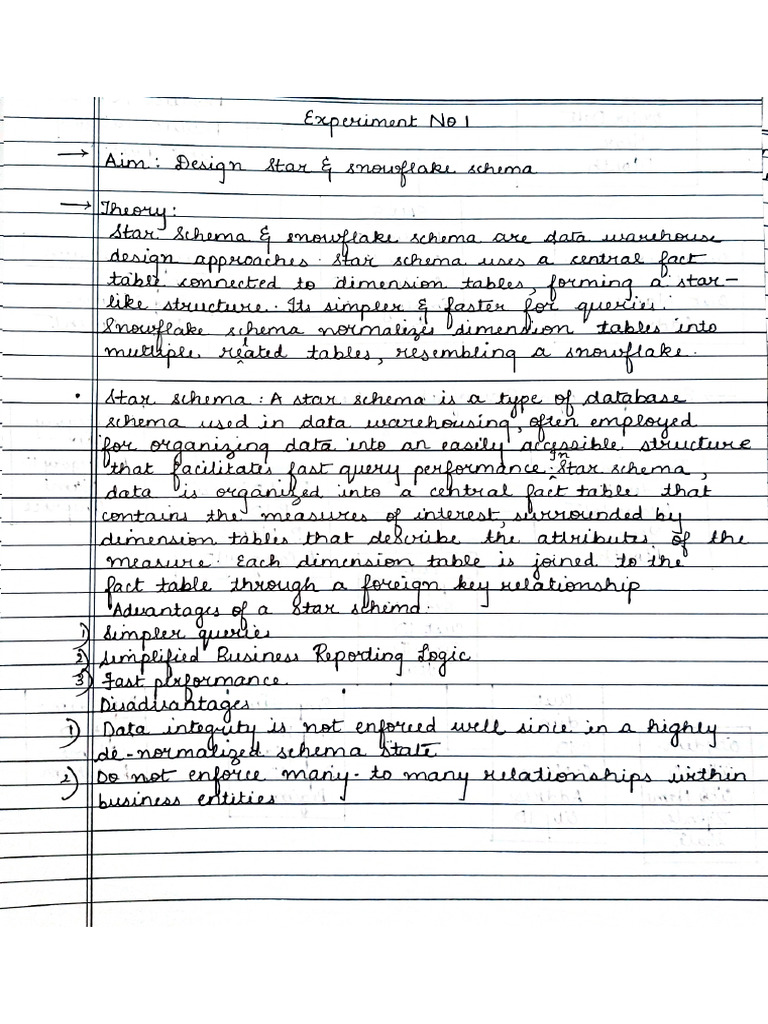 Experiment No 1
→ Aim: Design Star & snowflake schema
→ Theory:
Star Schema & snowflake schema are data warehouse
design approaches. Star schema uses a central fact
table connected to dimension tables, forming a star-
like structure. Its simpler & faster for queries.
Snowflake schema normalizes dimension tables into
multiple related tables, resembling a snowflake.
• Star schema: A star schema is a type of database
schema used in data warehousing, often employed
for organizing data into an easily accessible structure
that facilitates fast query performance. In Star schema,
data is organized into a central fact table that
contains the measures of interest, surrounded by
dimension tables that describe the attributes of the
measure. Each dimension table is joined to the
fact table through a foreign key relationship
Advantages of a Star schema.
1) Simpler queries
2) Simplified Business Reporting Logic
3) Fast performance.
Disadvantages
1) Data integrity is not enforced well since in a highly
de-normalized schema state
2) Do not enforce many-to many relationships within
business entities